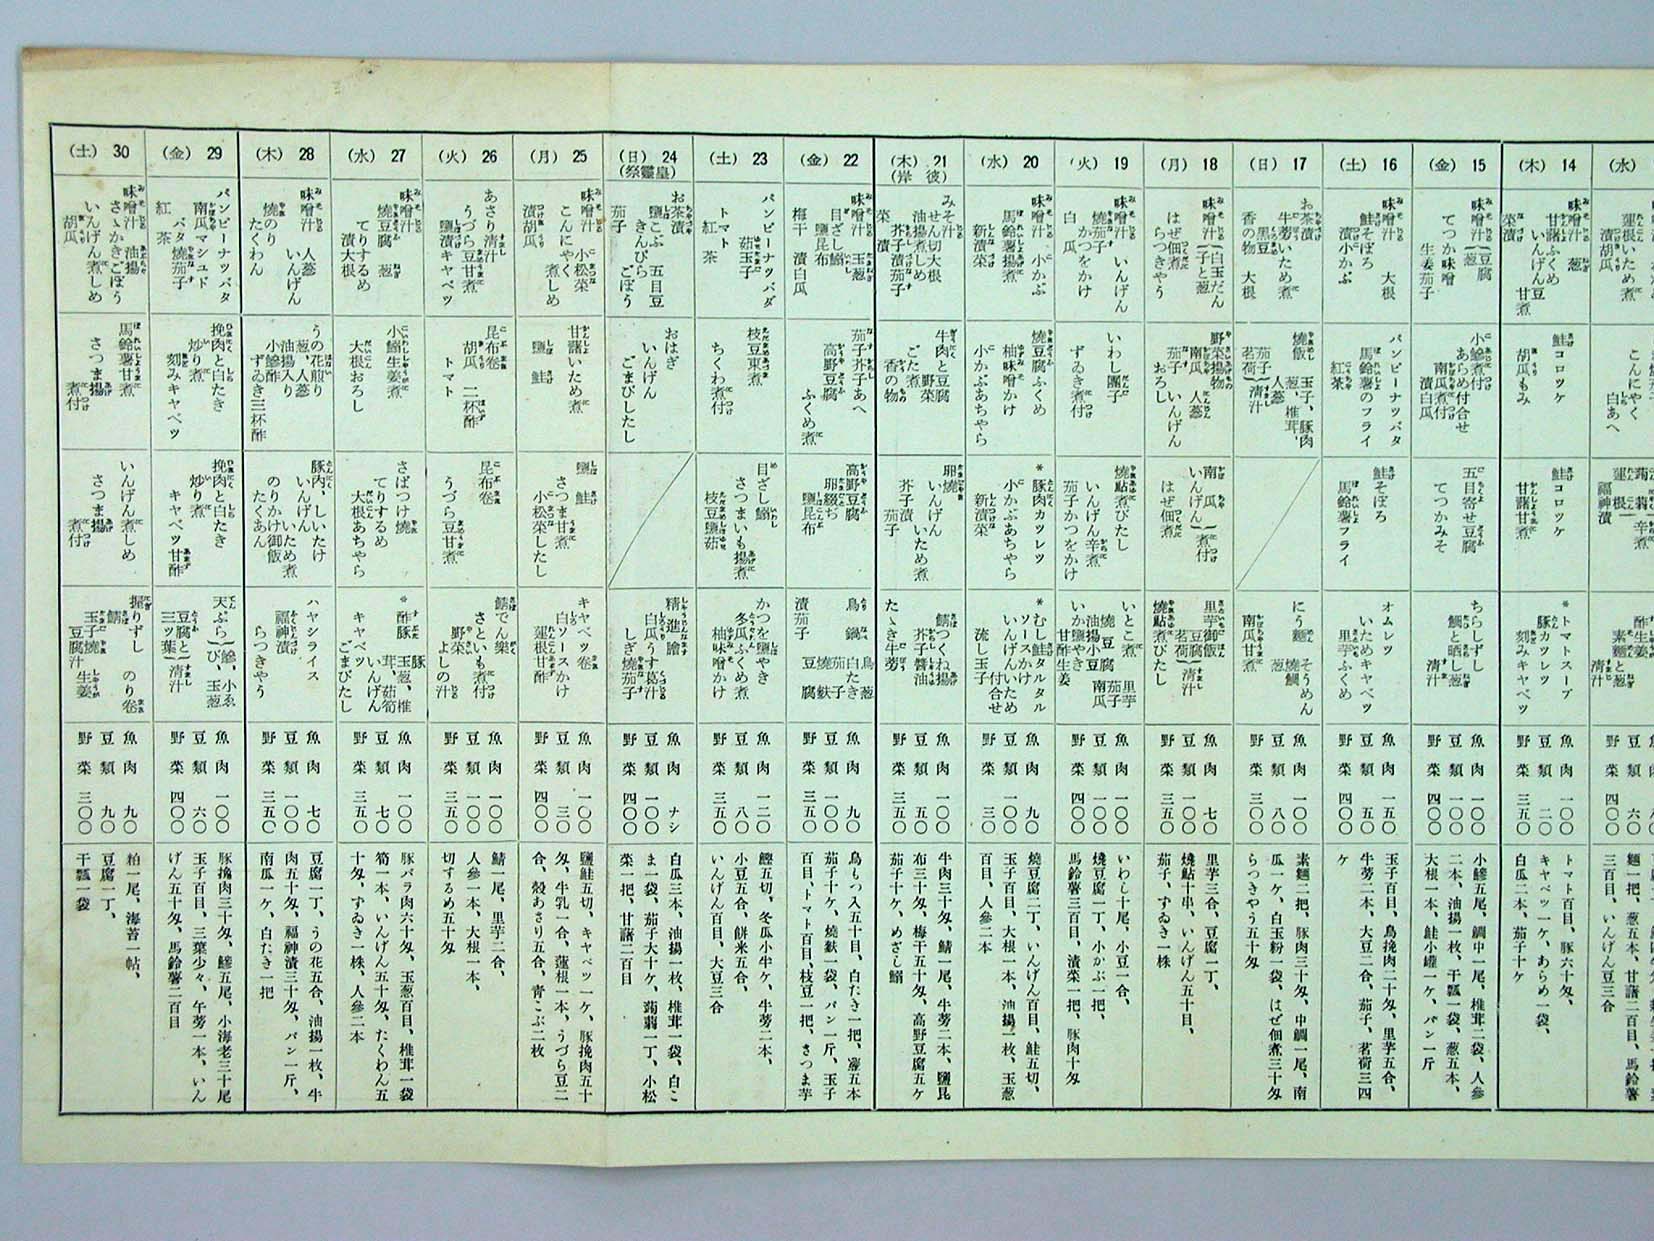 14 (木)
味噌汁 葱
甘藷ふくめ
いんげん豆甘煮
菜漬
鮭コロッケ
胡瓜もみ
鮭コロッケ
甘藷甘煮
*トマトスープ
豚カツレツ
刻みキャベツ
魚肉 一〇〇
豆類 二〇
野菜 三五〇
トマト百目、豚六十匁、
キャベツ一ケ、あらめ一袋、
白瓜二本、茄子十ケ
15 (金)
味噌汁(豆腐 葱
てつか味噌
生姜茄子
小鰺煮付
あらめ付合せ
南瓜煮付
漬白瓜
五目寄せ豆腐
てつかみそ
ちらしずし
鯛と晒し葱
清汁
魚肉 八〇
豆類 一〇〇
野菜 四〇〇
小鰺五尾、鯛中一尾、椎茸二袋、人參
二本、油揚一枚、干瓢一袋、葱五本、
大根一本、鮭小罐一ケ、パン一斤
16 (土)
味噌汁 大根
鮭そぼろ
漬小かぶ
パンピーナツバタ
馬鈴薯のフライ
紅茶
鮭そぼろ
馬鈴薯フライ
オムレツ
いためキャベツ
里芋ふくめ
魚肉 一五〇
豆類
野菜 四〇〇
玉子百目、鳥挽肉二十匁、里芋五合、
牛蒡二本、大豆二合、茄子、茗荷三四
ケ
17 (日)
お茶漬
牛蒡いため煮
黒豆
香の物 大根
燒飯 玉子、豚肉
葱、椎茸、
人參
茄子
茗荷)清汁
にう麵 そうめん
燒鯛
葱
南瓜甘煮
魚肉 一〇〇
豆類 八〇
野菜 三〇〇
素麵二把、豚肉三十匁、中鯛一尾、南
瓜一ケ、白玉粉一袋、はぜ佃煮三十匁
らつきやう五十匁
18 (月)
味噌汁(白玉だん
子と葱
はぜ佃煮
らつきやう
野菜揚物
南瓜 人參
茄子 いんげん
おろし
南瓜
いんげん)煮付
はぜ佃煮
里芋御飯
豆腐
茗荷)清汁
燒鮎煮びたし
魚肉 七〇
豆類 一〇〇
野菜
里芋三合、豆腐一丁、
燒鮎十串、いんげん五十目、
茄子、ずゐき一株
19 (火)
味噌汁 いんげん
燒茄子
かつをかけ
白瓜
いわし團子
ずゐき煮付
燒鮎煮びたし
いんげん辛煮
茄子かつをかけ
いとこ煮 里芋
燒豆腐 茄子
油揚小豆 南瓜
いか鹽やき
甘酢生姜
魚肉 一〇〇
豆類 一〇〇
野菜 四〇〇
いわし十尾、小豆一合、
燒豆腐一丁、小かぶ一把、
馬鈴薯三百目、漬菜一把、豚肉十匁
20 (水)
味噌汁 小かぶ
馬鈴薯揚煮
新漬菜
燒豆腐ふくめ
柚味噌かけ
小かぶあちやら
*豚肉カツレツ
小かぶあちやら
新漬菜
*むし鮭タルタル
ソースかけ
いんげんいため
付合せ
流し玉子
魚肉 九〇
豆類 一〇〇
野菜 三〇
燒豆腐二丁、いんげん百目、鮭五切、
玉子百目、大根一本、油揚一枚、玉葱
百目、人參二本
21 (木)
(彼岸)
みそ汁
せん切大根
油揚煮しめ
芥子漬茄子
菜漬
牛肉と豆腐
野菜
ごた煮
香の物
卵燒
いんげん
いため煮
芥子漬
茄子
鯖つくね揚
芥子醬油
たゝき牛蒡
魚肉 一〇〇
豆類 五〇
野菜 一五〇
牛肉三十匁、鯖一尾、牛蒡二本、鹽昆
布三十匁、梅干五十匁、高野豆腐五ケ
茄子十ケ、めざし鰯
22 (金)
味噌汁 玉葱
目ざし鰯
鹽昆布
梅干 漬白瓜
茄子芥子あへ
高野豆腐
ふくめ煮
高野豆腐
卵綴ぢ
鹽昆布
鳥鍋 鳥 葱
白たき
茄子
燒麩
豆腐
漬茄子
魚肉 九〇
豆類 一〇〇
野菜 三五〇
鳥もつ入五十目、白たき一把、葱五本
茄子十ケ、燒麩一袋、パン一斤、玉子
百目、トマト百目、枝豆一把、さつま芋
23 (土)
パンピーナツバダ
茹玉子
トマト
紅茶
枝豆東煮
ちくわ煮付
目ざし鰯
さつまいも揚煮
枝豆鹽茹
かつを鹽やき
冬瓜ふくめ煮
柚味噌かけ
魚肉 一二〇
豆類 八〇
野菜 三五〇
鰹五切、冬瓜小半ケ、牛蒡二本、
小豆五合、餅米五合、
いんげん百目、大豆三合
24 (日)
(皇靈祭)
お茶漬
鹽こぶ 五目豆
きんぴら
ごぼう
茄子
おはぎ
いんげん
ごまびしたし
精進膾
白瓜うす葛汁
しぎ燒茄子
魚肉 ナシ
豆類 一〇〇
野菜 四〇〇
白瓜三本、油揚一枚、椎茸一袋、白ご
ま一袋、茄子大十ケ、蒟蒻一丁、小松
菜一把、甘藷二百目
25 (月)
味噌汁 小松菜
こんにやく
煮しめ
漬胡瓜
甘藷いため煮
鹽鮭
鹽鮭
さつま甘煮
小松菜したし
キャベツ卷
白ソースかけ
蓮根甘酢
魚肉 一〇〇
豆類 三〇
野菜 四〇〇
鹽鮭五切、キャベツ一ケ、豚挽肉五十
匁、牛乳一合、蓮根一本、うづら豆二
合、殼あさり五合、青こぶ二枚
26 (火)
あさり清汁
うづら豆甘煮
鹽漬キャベツ
昆布卷
胡瓜 二杯酢
トマト
昆布卷
うづら豆甘煮
鯖でん樂
さといも煮付
野菜よしの汁
魚肉 一〇〇
豆類 一〇〇
野菜 三五〇
鯖一尾、里芋二合、
人參一本、大根一本、
切するめ五十匁
27 (水)
味噌汁 葱
燒豆腐
てりするめ
漬大根
小鰯生姜煮
大根おろし
さばつけ燒
てりするめ
大根あちやら
*酢豚 豚
玉葱、椎
茸、茹筍
いんげん
キャベツ
ごまびたし
魚肉 一〇〇
豆類 七〇
野菜 三五〇
豚バラ肉六十匁、玉葱百目、椎茸一袋
筍一本、いんげん五十匁、たくわん五
十匁、ずゐき一株、人參二本
28 (木)
味噌汁 人參
いんげん
燒のり
たくわん
うの花煎り
葱、人參
油揚入り
小鰺酢
ずゐき三杯酢
豚肉、しいたけ
いんげん
いため煮
のりかけ御飯
たくあん
ハヤシライス
福神漬
らつきやう
魚肉 七〇
豆類 一〇〇
野菜 三五〇
豆腐一丁、うの花五合、油揚一枚、牛
肉五十匁、福神漬三十匁、パン一斤、
南瓜一ケ、白たき一把
29 (金)
パンピーナツバタ
南瓜マシュド
バタ燒茄子
紅茶
挽肉と白たき
炒り煮
刻みキャベツ
挽肉と白たき
炒り煮
キャベツ甘酢
天ぷら(鰺、小ゑ
び 玉葱
豆腐と
三ツ葉)清汁
魚肉 一〇〇
豆類 六〇
野菜 四〇〇
豚挽肉三十匁、鰺五尾、小海老三十尾
玉子百目、三葉少々、午蒡一本、いん
げん五十匁、馬鈴薯二百目
30 (土)
味噌汁 油揚
さゝがきごぼう
いんげん煮しめ
胡瓜
馬鈴薯甘煮
さつま揚
煮付
いんげん煮しめ
さつま揚
煮付
握りずし のり卷
鯖
玉子燒 生姜
豆腐汁
魚肉 九〇
豆類 九〇
野菜 三〇〇
粕一尾、海苔一帖、
豆腐一丁、
干瓢一袋